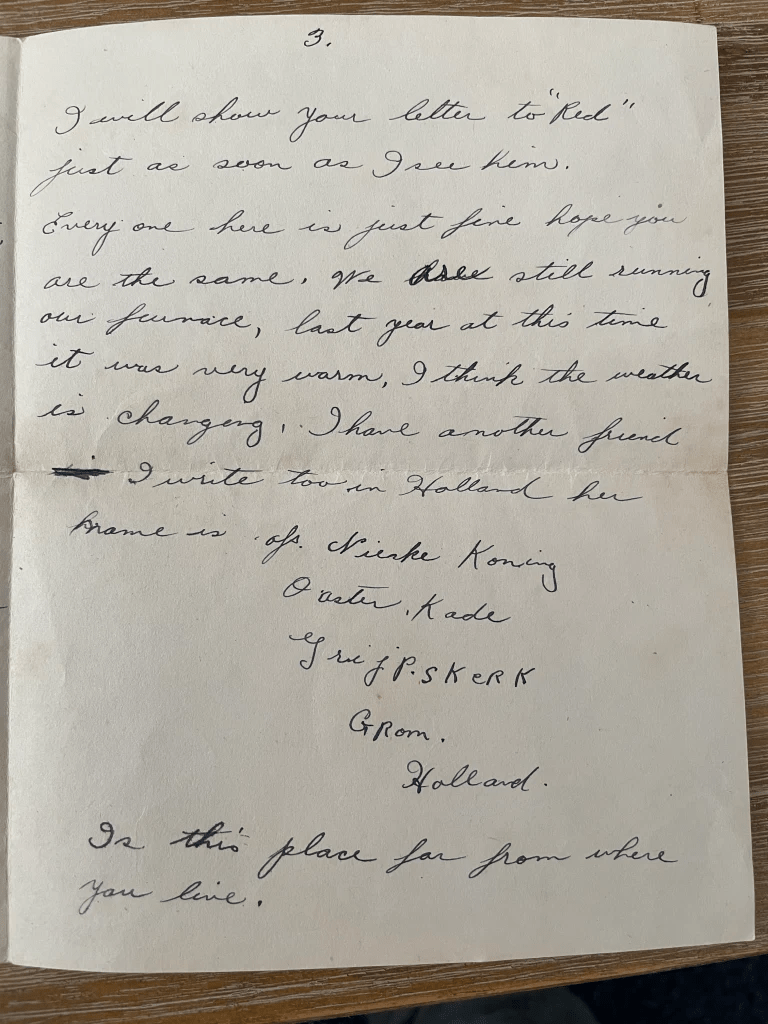 3.
I will show your letter to "Red"
just as soon as I see him.
Every one here is just fine hope you
are the same. We are still running
our furnace, last year at this time
it was very warm, I think the weather
is changeng. I have another friend
I write too in Holland her
name is Nieske Koning
Ooster, Kade
GrijP.SKeRK
GRom.
Holland.
Is this place far from where
you live.